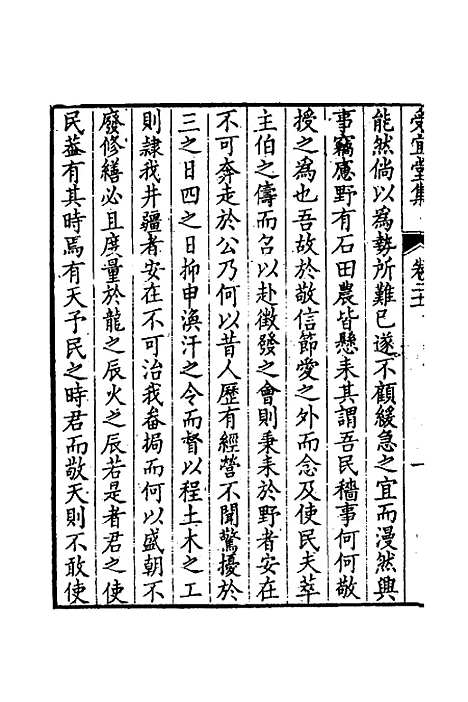 受宜堂集
卷二十
一
能然倘以為勢所難已遂不顧緩急之宜而漫然興
事竊應野有石田農皆懸耒其謂吾民穡事何何敬
授之為也吾故於敬信節愛之外而念及使民夫萃
主伯之儔而名以赴徵發之會則秉耒於野者安在
不可奔走於公乃何以昔人歷有經營不聞驚擾於
三之日四之日抑申渙汗之令而督以程土木之工
則隸我井疆者安在不可治我畚挶而何以盛朝不
廢修繕必且度量於龍之辰火之辰若是者君之使
民葢有其時焉有天予民之時君而敬天則不敢使